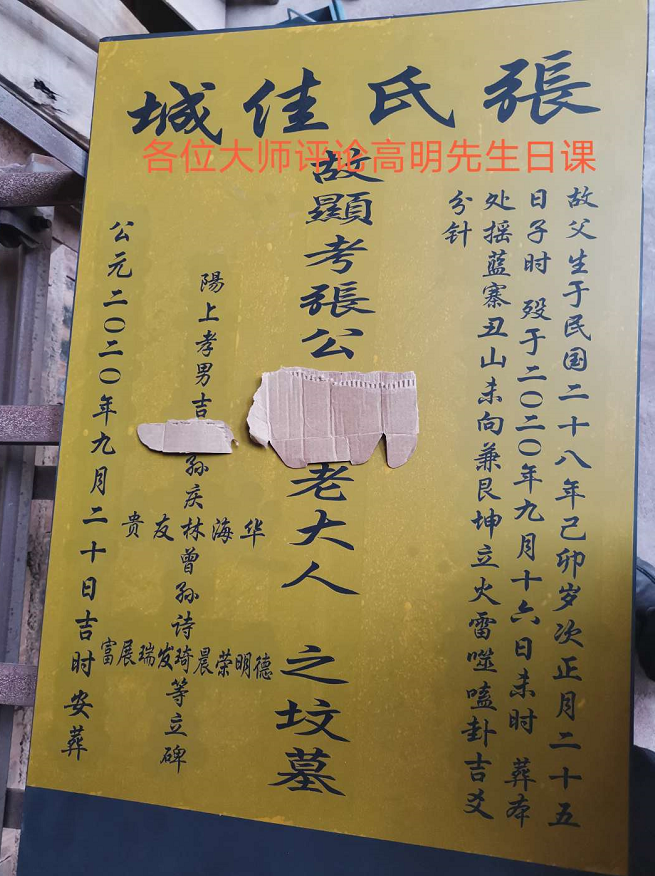 張氏佳城
各位大师评论高明先生日课
故父生于民国二十八年己卯岁次正月二十五
日子时 殁于二〇二〇年九月十六日未时 葬本
处摇蓝寨丑山未向兼艮坤立火雷噬嗑卦吉爻
分针
故顯考張公老大人 之坟墓
陽上孝男吉
孙庆
华海林友贵
曾孙诗
德明荣晨琦发瑞展富
等立碑
公元二〇二〇年九月二十日吉时安葬